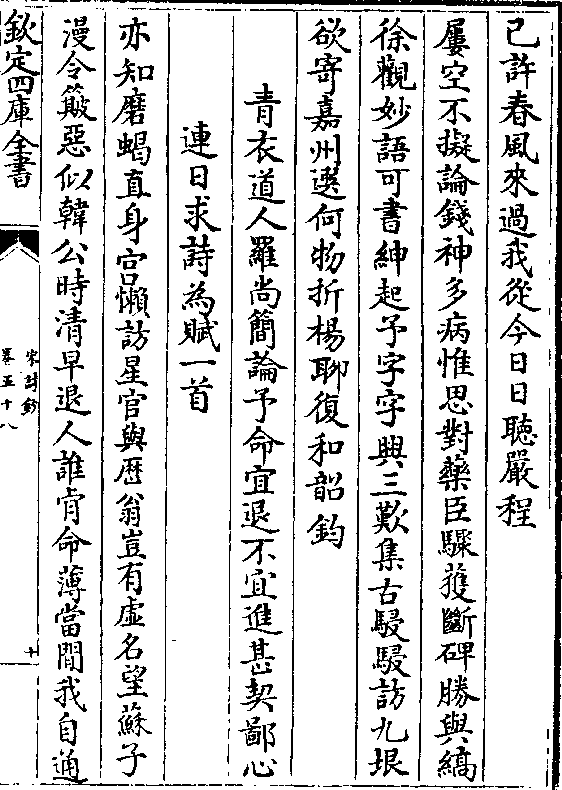 已許春風來過我從今日日聽嚴程
屢空不擬論錢神多病惟思對藥臣驟獲斷碑勝與縞
徐觀妙語可書紳起予字字興三歎集古駸駸訪九垠
欲寄嘉州選何物折楊聊復和韶鈞
青衣道人羅尚簡論予命宜退不宜進甚契鄙心
連日求詩為賦一首
亦知磨蝎直身宫懶訪星官與厯翁豈有虛名望蘇子
漫令簸惡似韓公時清早退人誰肯命薄當閒我自通
欽定四庫全書
宋詩鈔
卷五十八
十